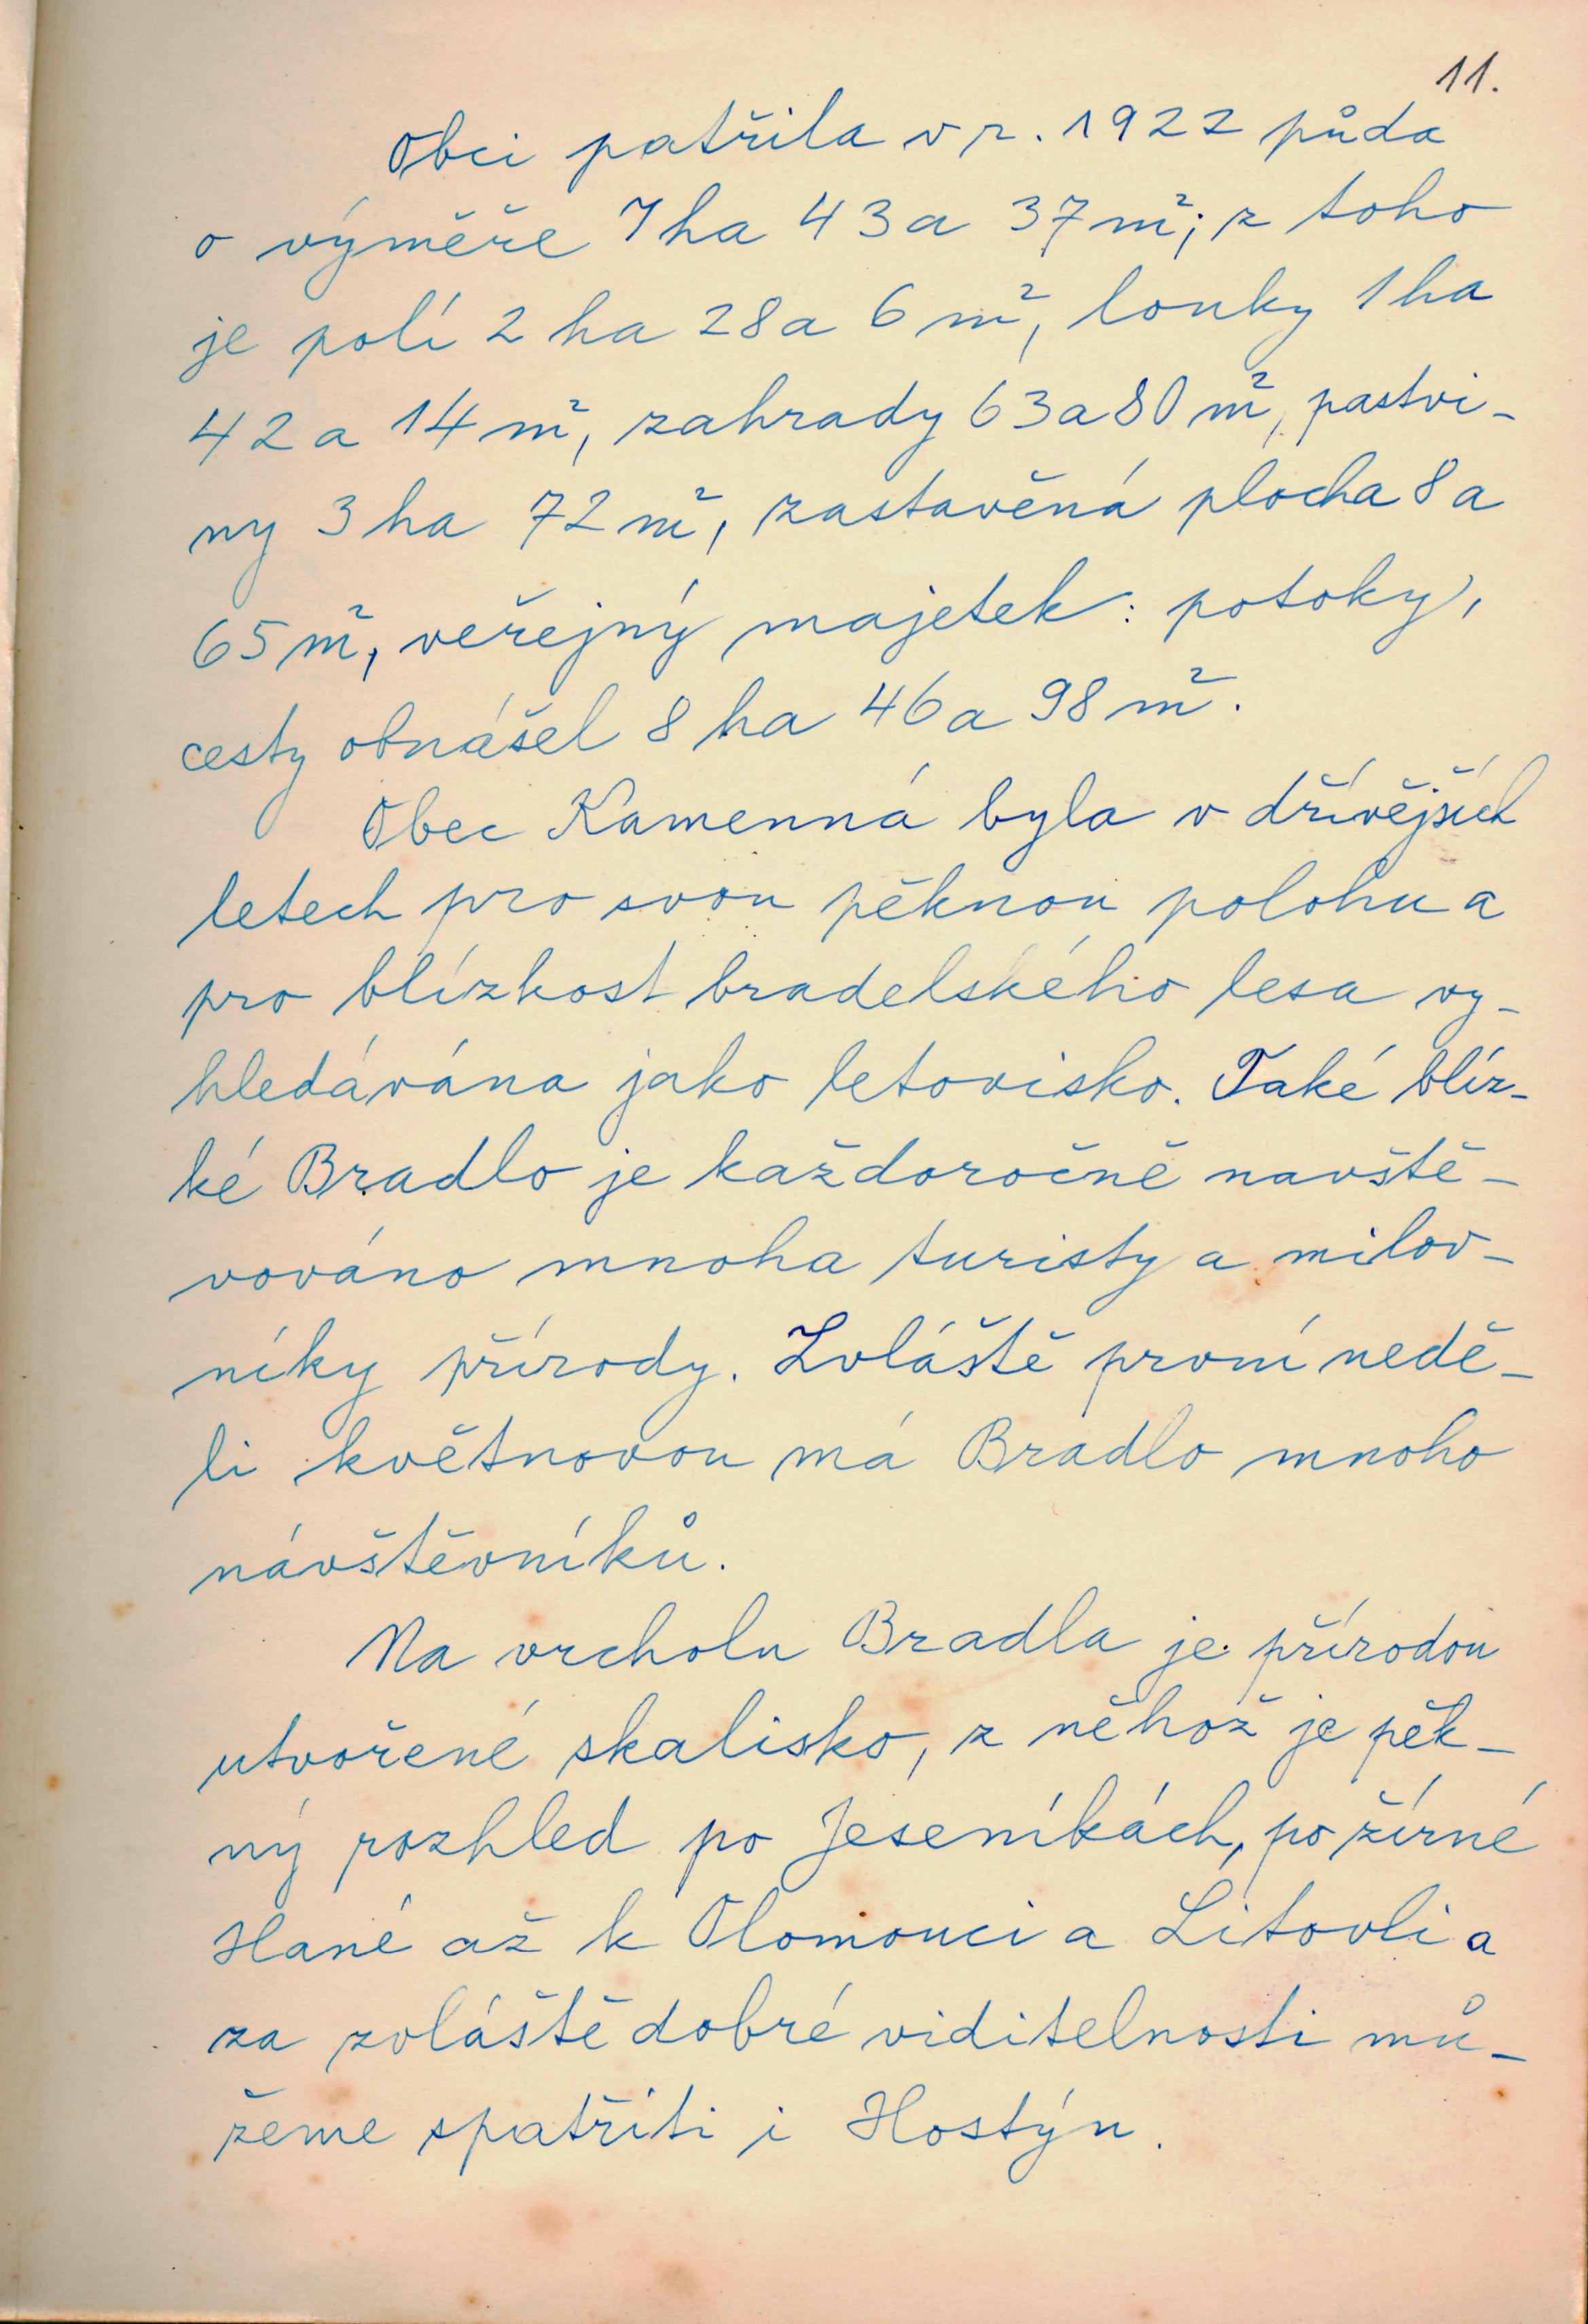 11.
Obci patřila v r. 1922 půda
o výměře 7 ha 43 a 37 m²; z toho
je polí 2 ha 28 a 6 m², louky 1 ha
42 a 14 m², zahrady 63 a 80 m², pastvi-
ny 3 ha 72 m², zastavěná plocha 8 a
65 m², veřejný majetek: potoky,
cesty obnášel 8 ha 46 a 98 m².
Obec Kamenná byla v dřívějších
letech pro svou pěknou polohu a
pro blízkost bradelského lesa vy-
hledávána jako letovisko. Také blíz-
ké Bradlo je každoročně navště-
vováno mnoha turisty a milov-
níky přírody. Zvláště první nedě-
li květnovou má Bradlo mnoho
návštěvníků.
Na vrcholu Bradla je přírodou
utvořené skalisko, z něhož je pěk-
ný rozhled po Jeseníkách, po žírné
Hané až k Olomouci a Litovli a
za zvláště dobré viditelnosti mů-
žeme spatřiti i Hostýn.